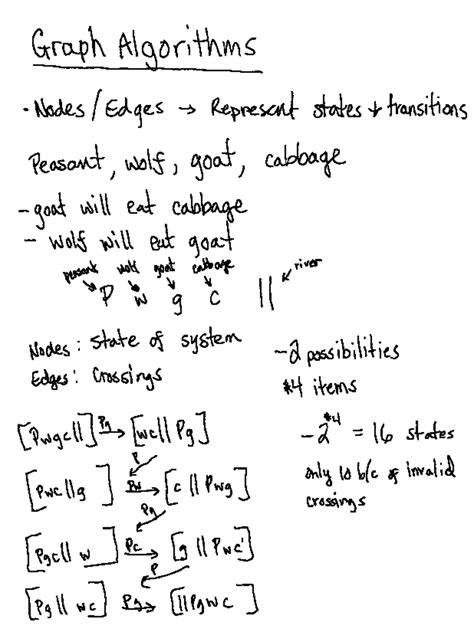 Graph Algorithms
· Nodes/Edges → Represent states + transitions
Peasant, wolf, goat, cabbage
- goat will eat cabbage
- wolf will eat goat
peasant wolf goat cabbage
P w g c || ← river
Nodes: state of system
Edges: Crossings
- 2 possibilities
*4 items
- 2^*4 = 16 states
only 10 b/c of invalid
crossings
[Pwgc||] Pg→ [wc|| Pg]
P
[Pwc||g ] Pw→ [c || Pwg]
Pg
[Pgc|| w ] Pc→ [g || Pwc]
P
[Pg || wc] Pg→ [||Pgwc ]